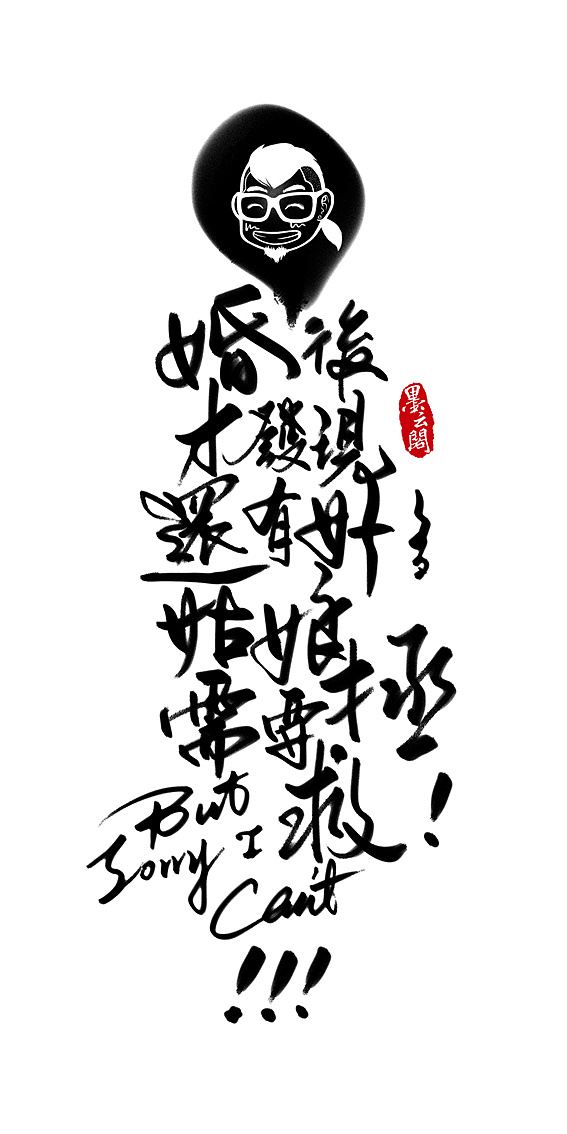 婚後
才發現
還有好多
姑娘
需要拯救！
But
Sorry I
Can't
!!!
墨云閣